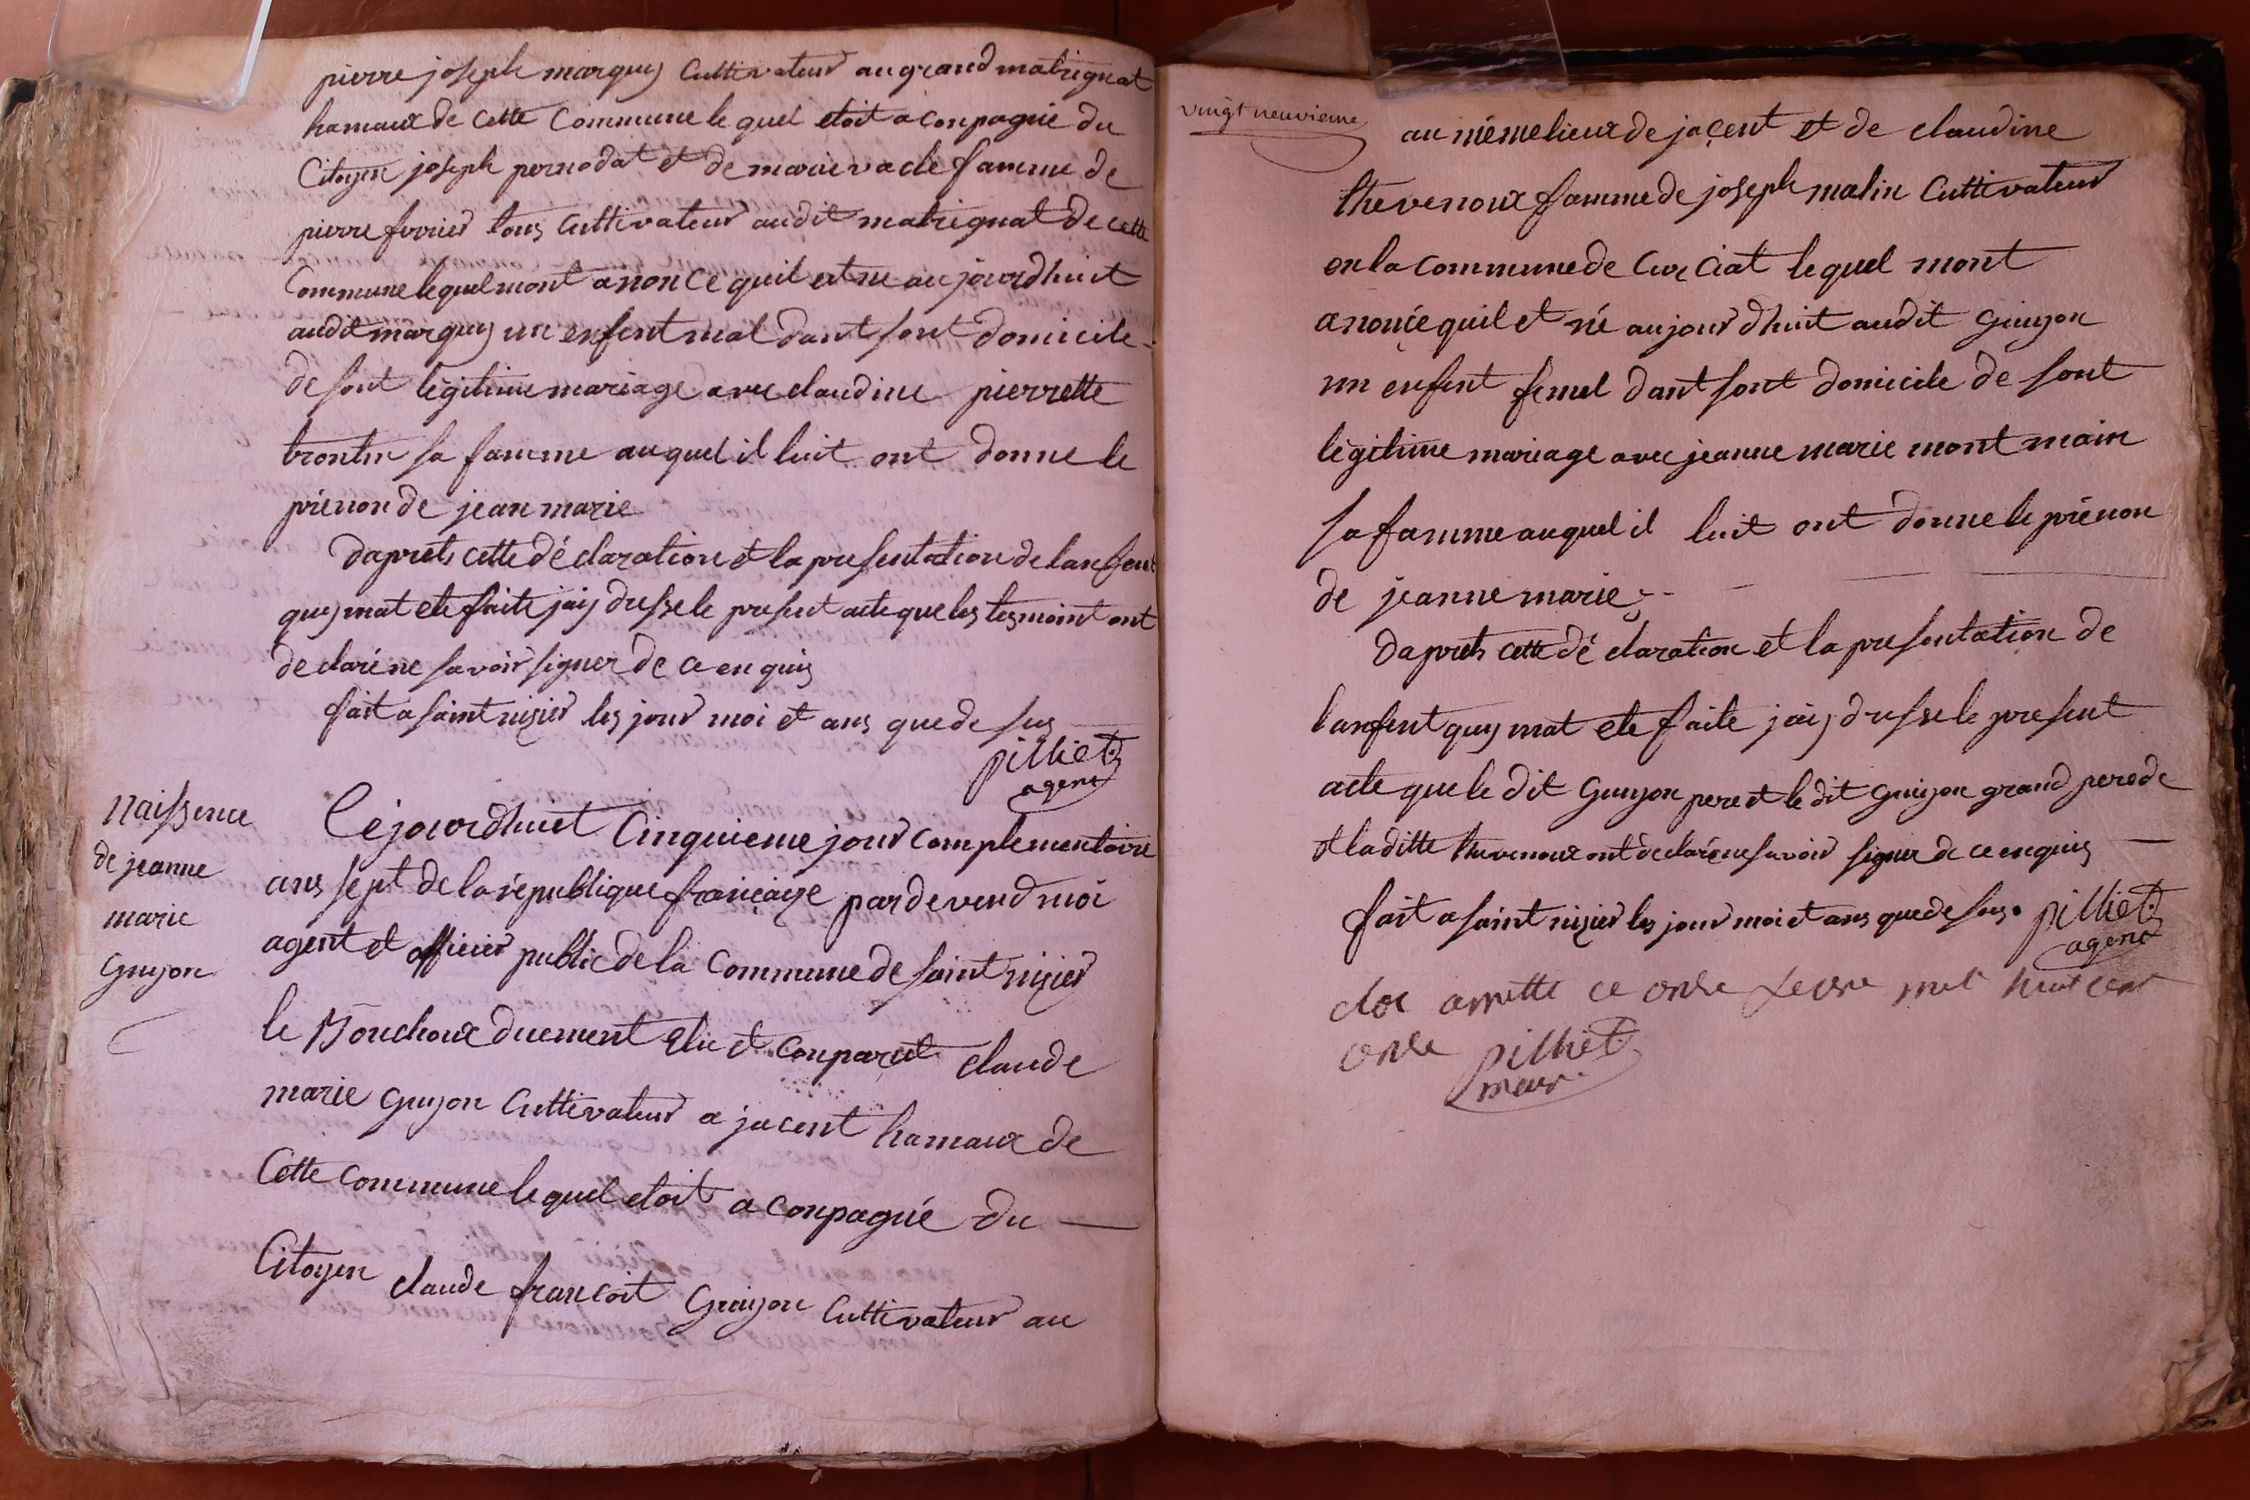 pierre joseph marquis Cultivateur au grand matrignat
hamaux de cette Commune le quel etoit a conpagnié du
Citoyen joseph pernodat et de marie vacle famme de
pierre ferrier tous Cultivateur audit matrignat de cette
Commune le quel mont anonce quil est ne au jourdhuit
audit marquis un enfent mal dant sont domicile
de sont légitime mariage avec claudine pierrette
brontin sa famme au quel il luit ont donne le
prénon de jean marie
daprets cette dé claration et la presentation de lanfent
quy mat ete faite jaiy dresse le present acte que les tesmoint ont
de claré ne savoir signer de ce en quis
fait a saint nizier les jour moi et ans que de sus
pilliet
agent
Naissence
de jeanne
marie
Guyon
Cejourdhuit Cinquieme jour complementaire
ans sept de la république françaize par de vend moi
agent et officier public de la Commune de saint nizier
le Bouchoux duement Elu et Conparut claude
marie guyon Cultivateur a jacent hamaux de
Cette commune le quel etoit a conpagnié du
Citoyen claude francoit Guiyon Cultivateur au
vingt neuvieme
au mémelieux de jaçent et de claudine
thevenoux famme de joseph malin Cultivateur
en la commune de Curciat le quel mont
anonçé quil et né au jour dhuit audit Guiyon
un enfent femel dant sont domicile de sont
légitime mariage avec jeanne marie mont main
sa famme au quel il luit ont donne le prénon
de jeanne marie
daprets cette dé claration et la presentation de
lanfent quy mat ete faite jaiy dresse le present
acte que le dit Guuyon pere et le dit Guiyon grand pere de
et laditte thevenoux ont déclaré ne savoir signer de ce en quis
fait a saint nizier les jour moi et ans que de sus. pilliet
agent
cloc arrette ce onse fevrie mil huit cent
onse pilliet
meur